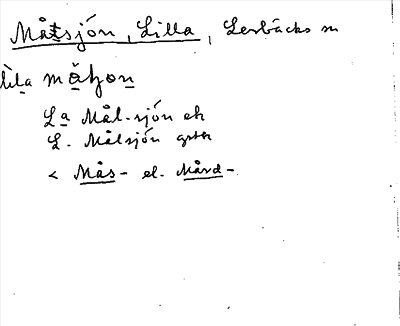 Måtsjön, Lilla, Lerbäcks sn
lìla måʈʃon
La Mål-sjön ek
L. Målsjön gstk
< Mås- el. Mård-